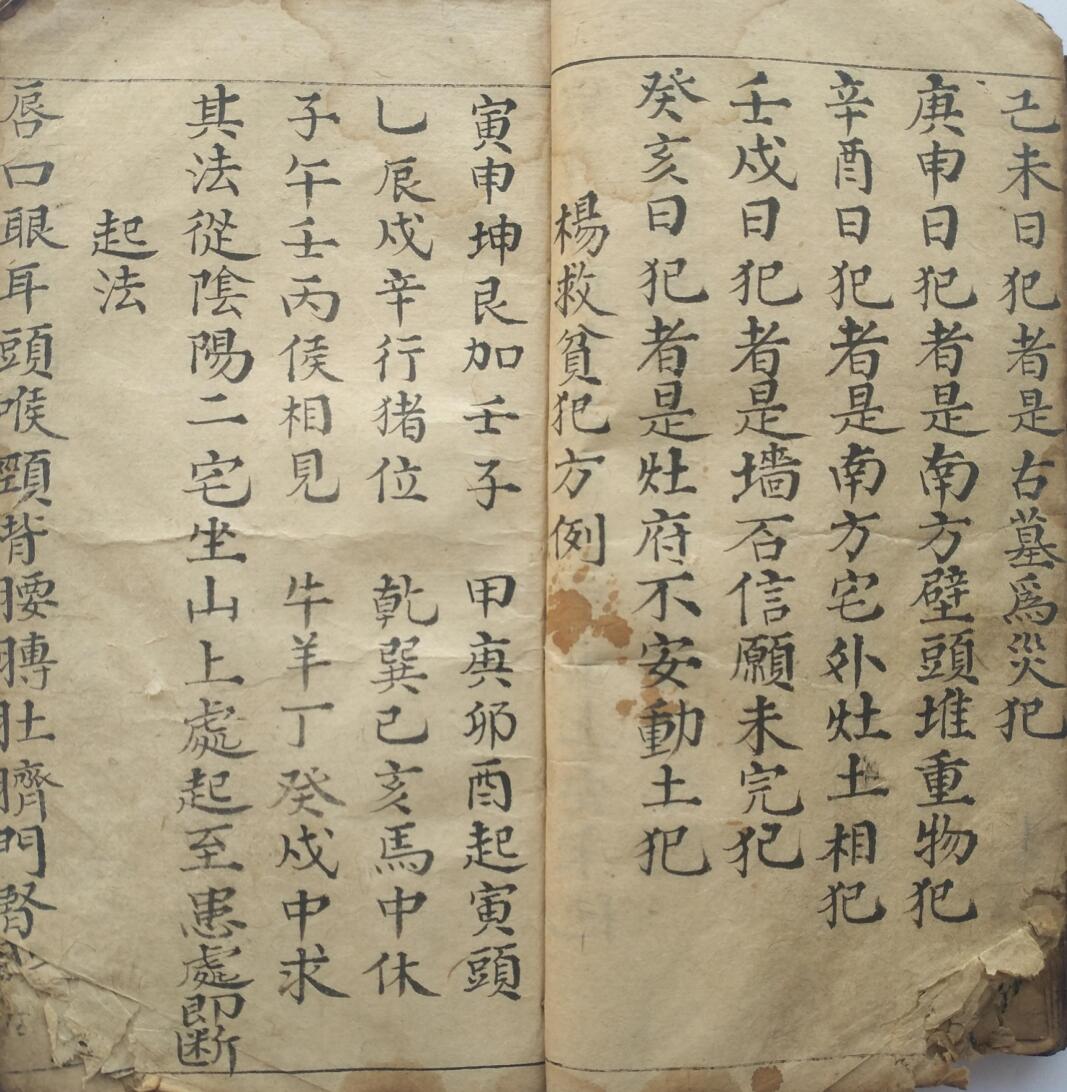 己未日犯者是古墓爲災犯
庚申日犯者是南方壁頭堆重物犯
辛酉日犯者是南方宅外灶土相犯
壬戌日犯者是墻否信願未完犯
癸亥日犯者是灶府不安動土犯
楊救貧犯方例
寅申坤艮加壬子 甲庚卯酉起寅頭
乙辰戌辛行猪位 乾巽巳亥馬中休
子午壬丙侯相見 牛羊丁癸戌中求
其法從陰陽二宅坐山上處起至患處即断
起法
唇口眼耳頭喉頸背腰膊肚臍門腎